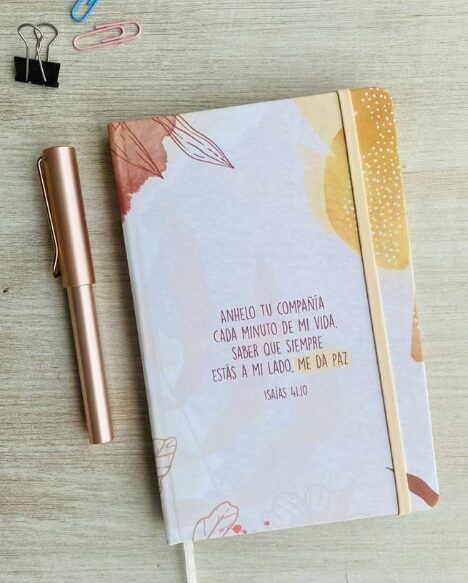 ANHELO TU COMPAÑÍA
CADA MINUTO DE MI VIDA,
SABER QUE SIEMPRE
ESTÁS A MI LADO, ME DA PAZ
ISAÍAS 41:10